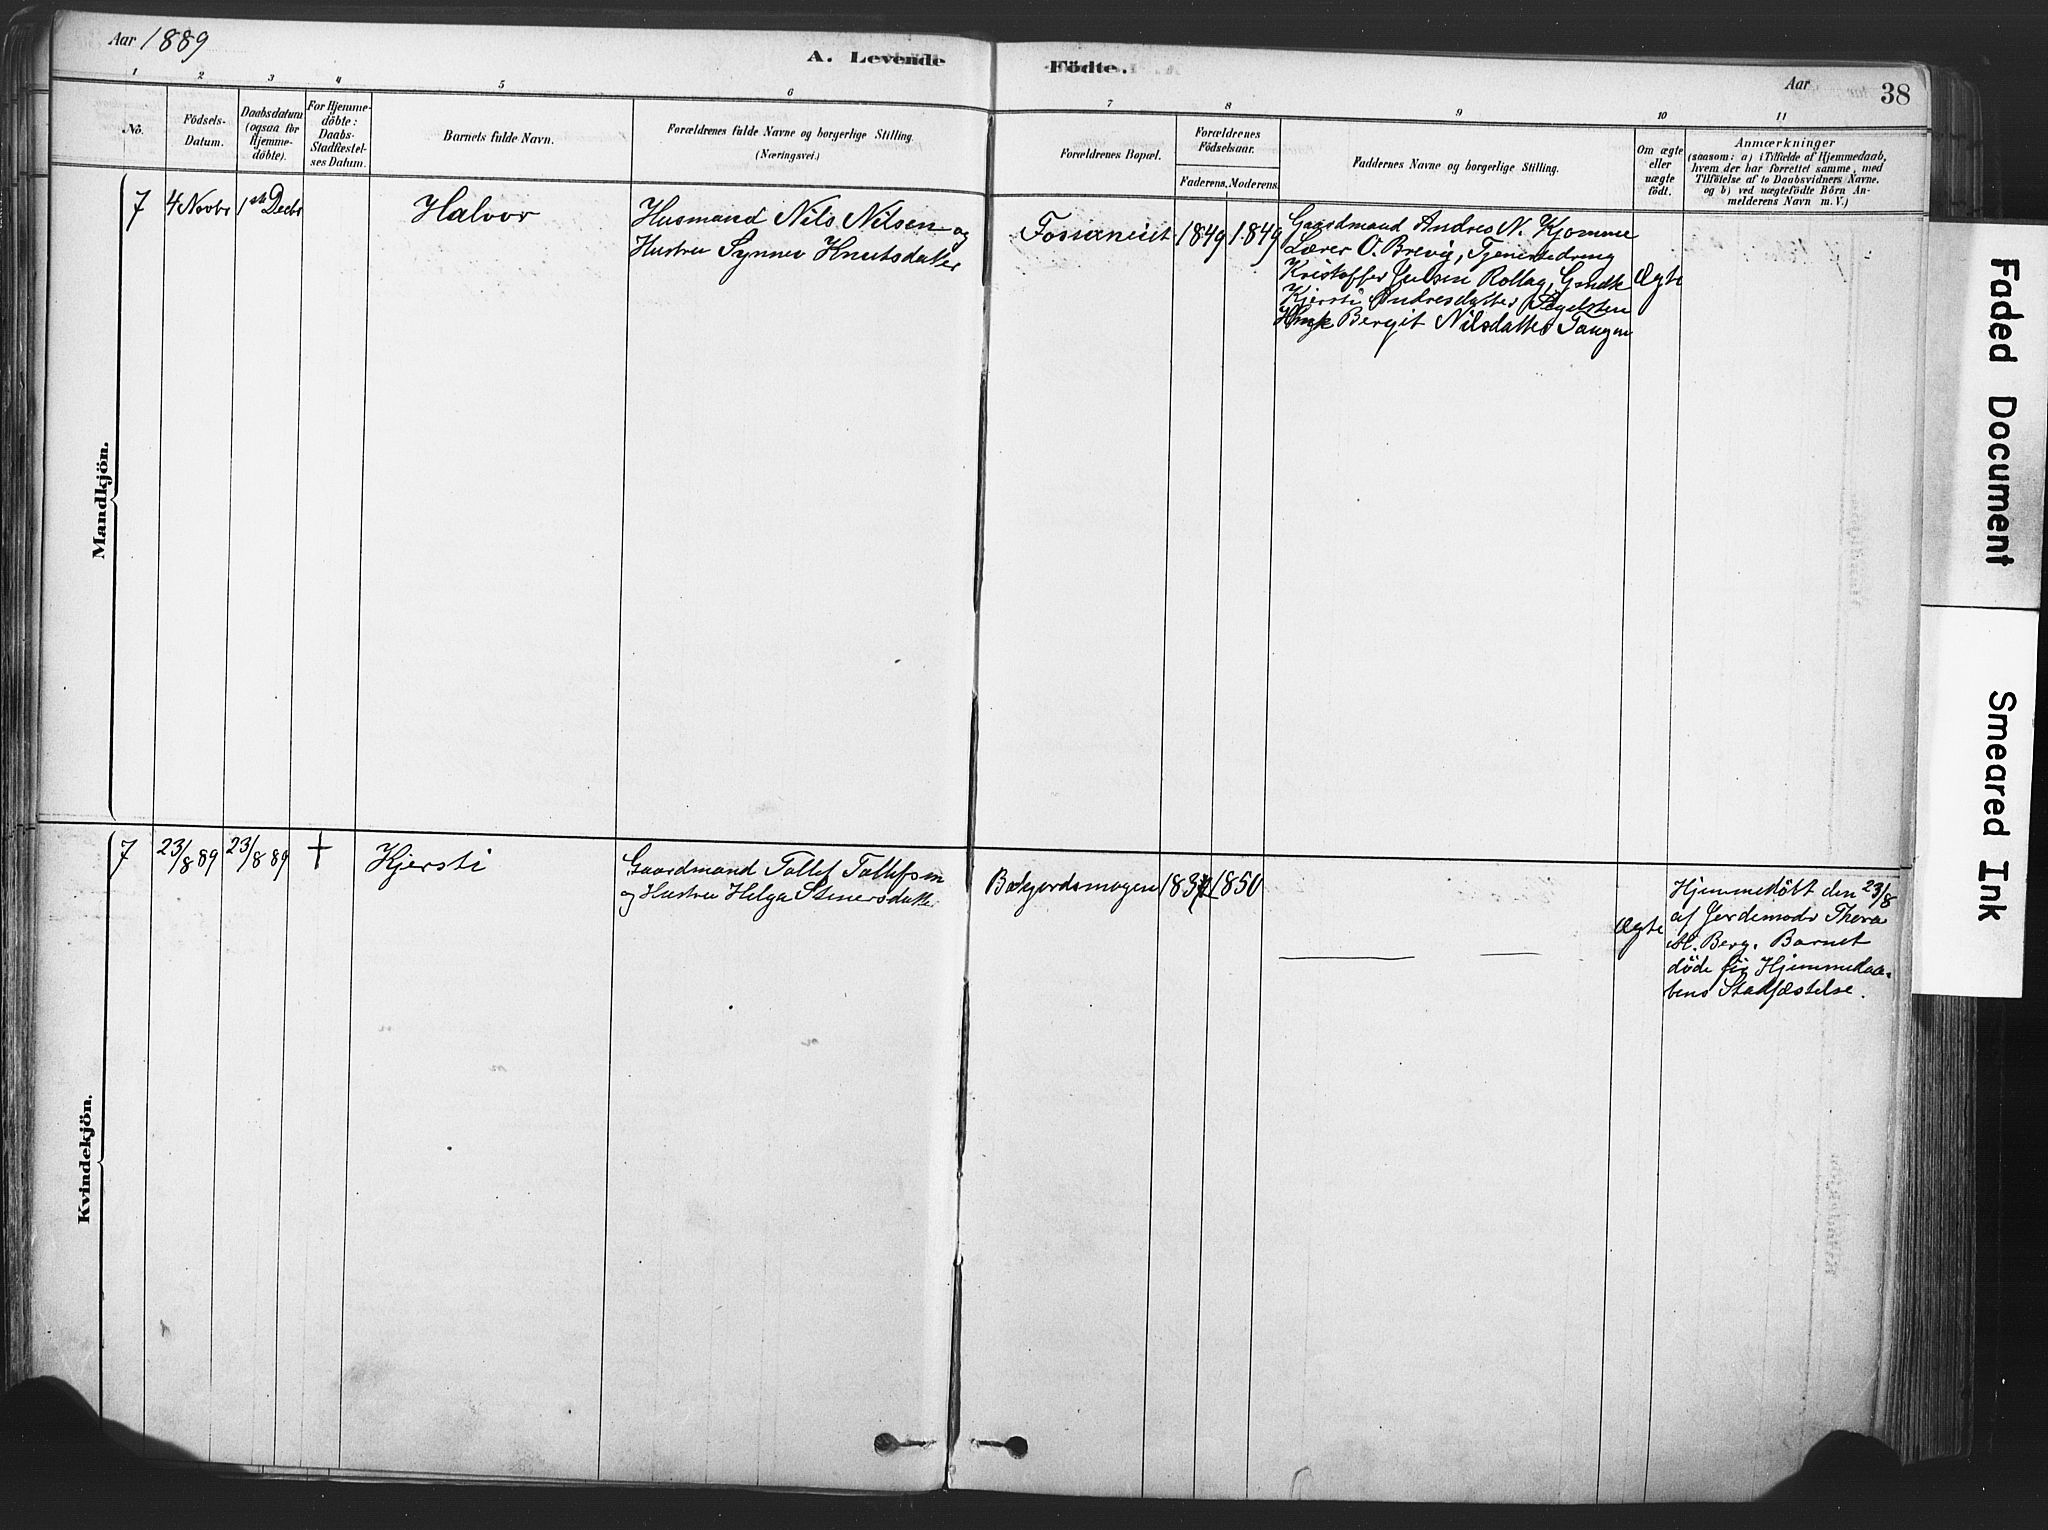 Aar 1889
A. Levende Födte.
Aar
38
1 2 3 4 5 6 7 8 9 10 11
No.
Födsels-
Datum.
Daabsdatum
(ogsaa for
Hjemme-
döbte).
For Hjemme-
döbte:
Daabs-
Stadfæstel-
ses Datum.
Barnets fulde Navn.
Forældrenes fulde Navne og borgerlige Stilling.
(Næringsvei.)
Forældrenes Bopæl.
Forældrenes
Födselsaar.
Faderens. Moderens.
Faddernes Navne og borgerlige Stilling.
Om ægte
eller
uægte
födt.
Anmærkninger
(saasom: a) i Tilfælde af Hjemmedaab,
hvem der har forrettet samme, med
Tilföielse af to Daabsvidners Navne.
og b) ved uægtefödte Börn An-
melderens Navn m. V.)
Mandkjön.
7
4 Novbr
1ste Decbr
Halvor
Husmand Nils Nilsen og
Hustru Synnev Knutsdatter
Fossaneiet
1849
1849
Gaardmand Andres N. Kjomme
Lærer O. Brevig, Tjenestedreng
Kristoffer Julsen Rollag, Gmdk
Kjersti Andresdatter
Hmk Bergit Nilsdatter Tangen
Ægte
Kvindekjön.
7
23/8 89
23/8 89
+
Kjersti
Gaardmand Tollef Tollefsen
og Hustru Helga Stenersdatter
Bækjordsmogen
1850
Ægte
Hjemmedøbt den 23/8
af Jordemoder Thora
M. Berg. Barnet
døde før Hjemmedaa-
bens Stadfæstelse.
Faded Document
Smeared Ink